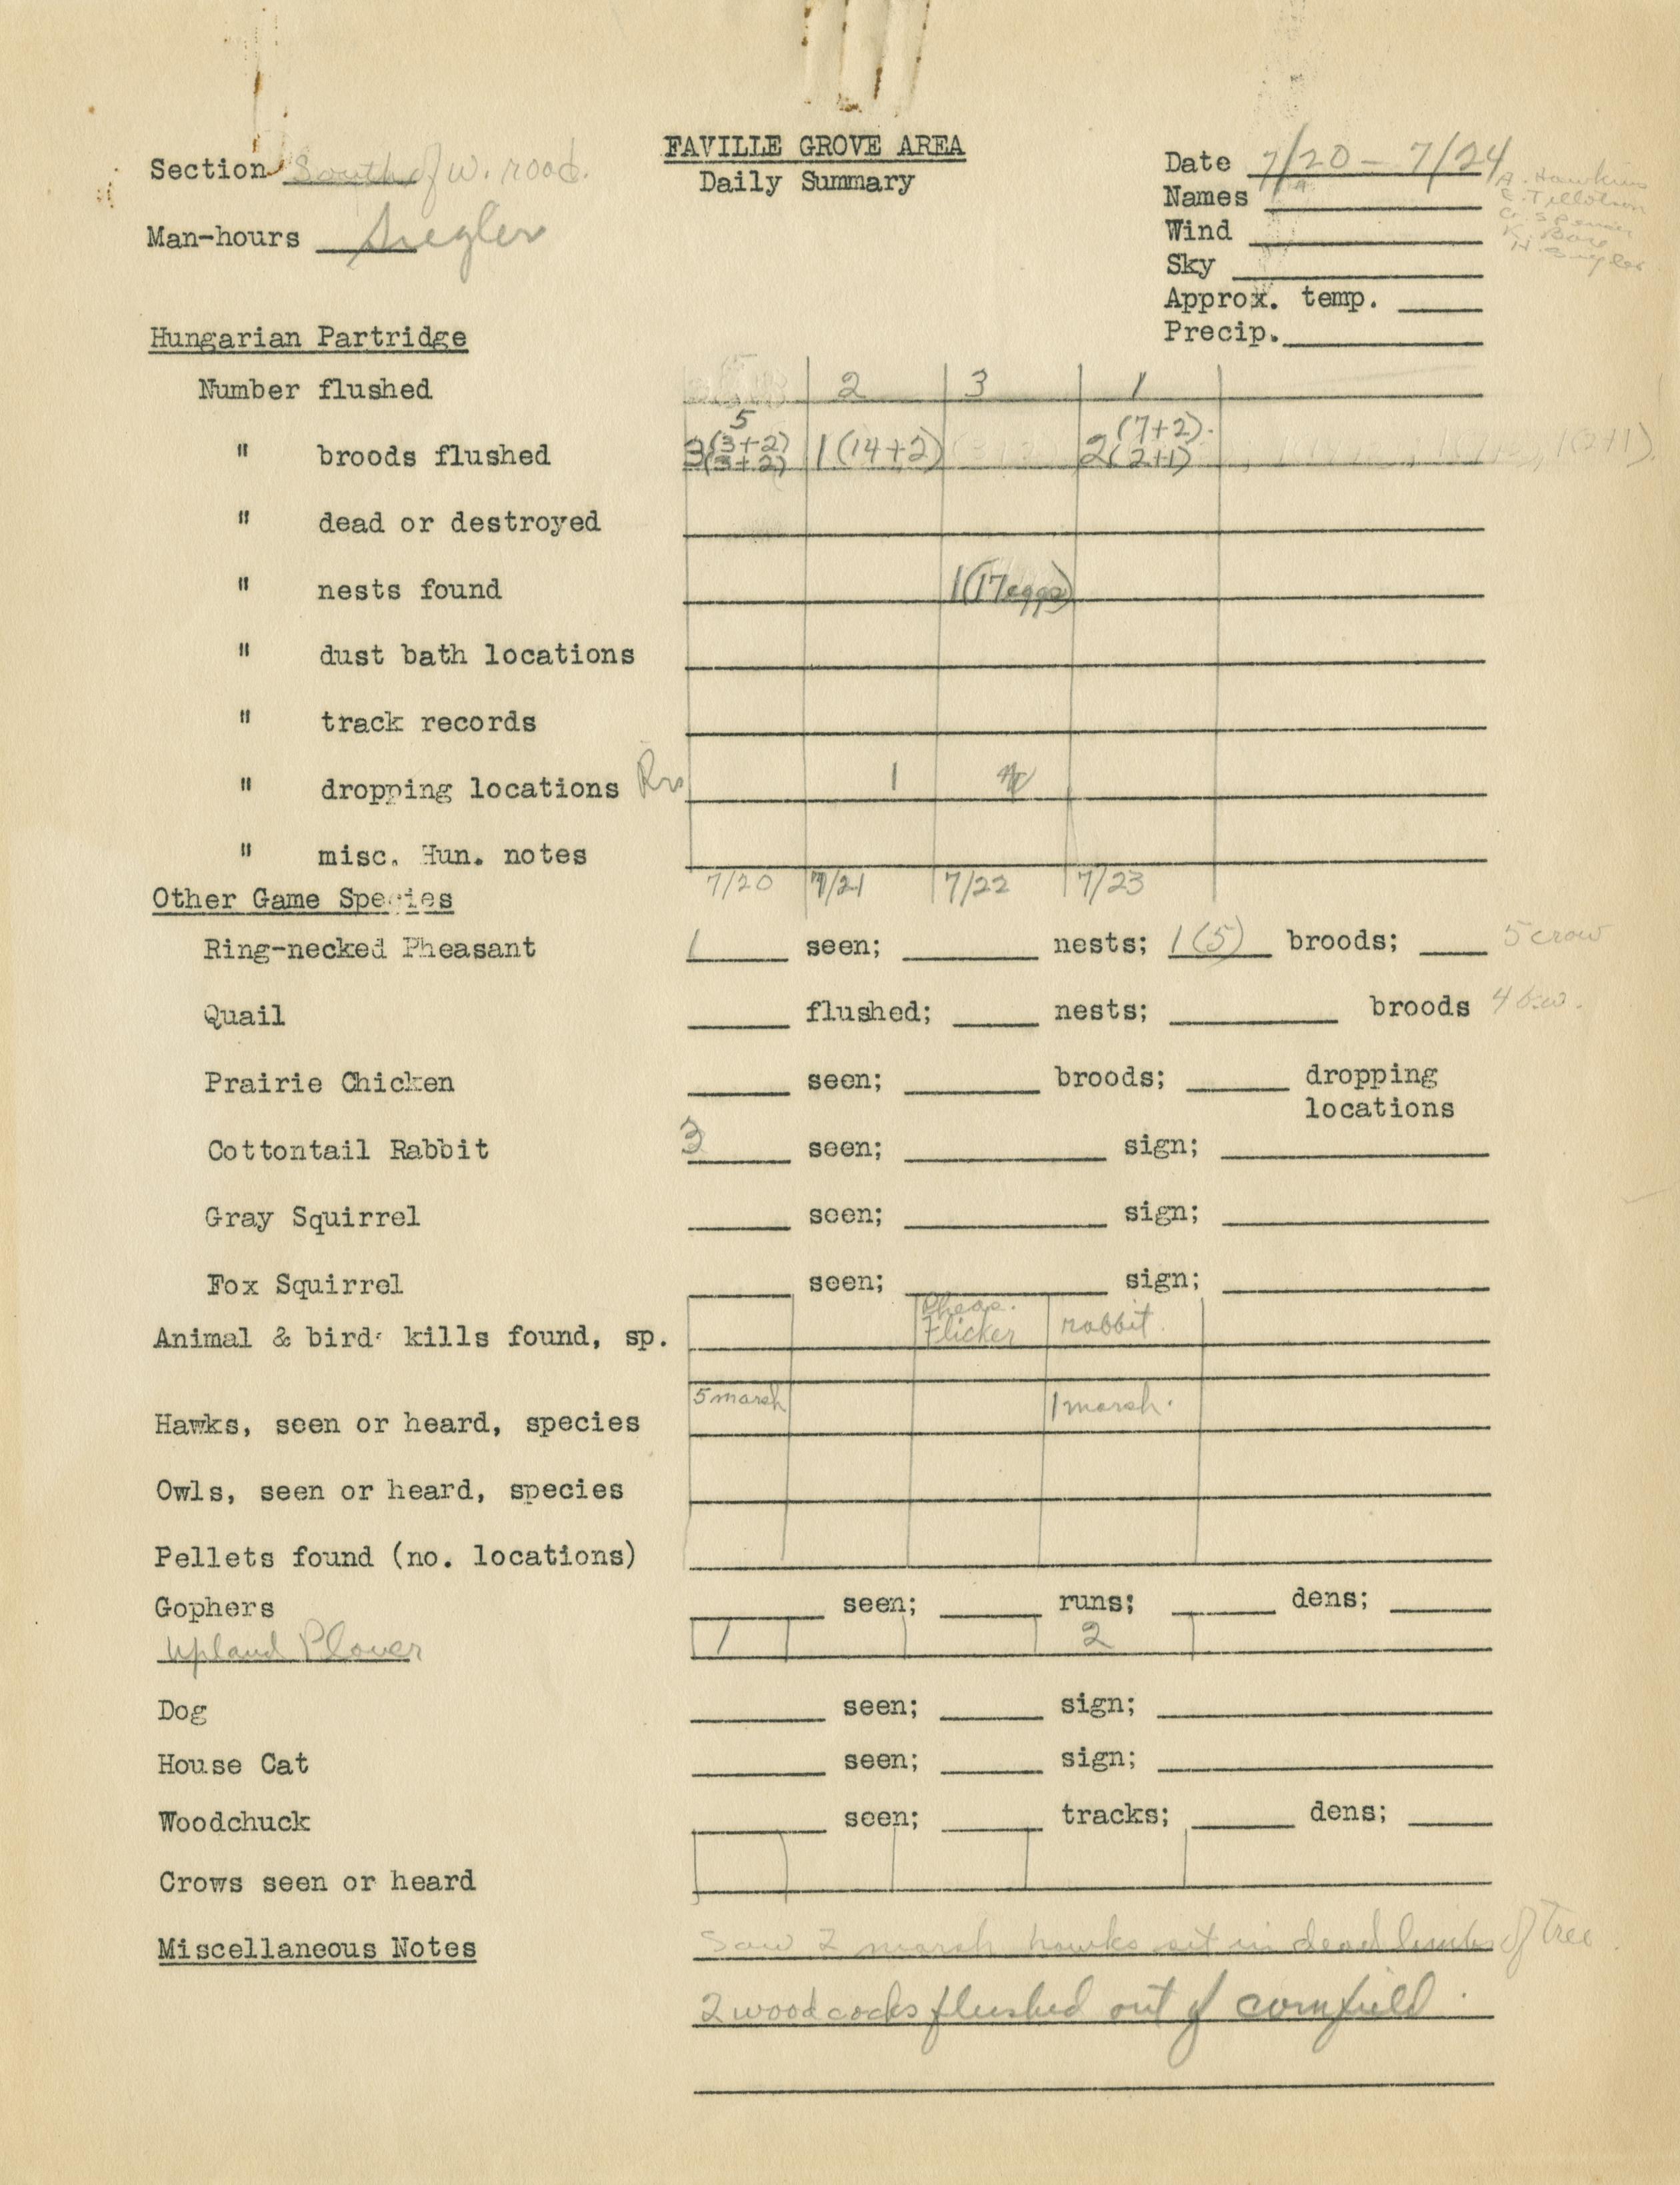 FAVILLE GROVE AREA
Daily Summary
Section South of W. road.
Man-hours Siegler
Date 7/20 - 7/24
Names A. Hawkins
E. Tillotson
Wind
Sky
Approx. temp.
Precip.
Hungarian Partridge
Number flushed 2 3 1
" broods flushed 3 5 (3+2) (3+2) 1(14+2) 2 (7+2). (2+1) 1(2+1).
" dead or destroyed
" nests found 1(17 eggs)
" dust bath locations
" track records
" dropping locations 1
" misc. Hun. notes
7/20 7/21 7/22 7/23
Other Game Species
Ring-necked Pheasant 1 seen; nests; 1(5) broods; 5 crow
Quail flushed; nests; broods 4 b.w.
Prairie Chicken seen; broods; dropping
locations
Cottontail Rabbit 3 seen; sign;
Gray Squirrel seen; sign;
Fox Squirrel seen; sign;
Animal & bird kills found, sp. Pheas. Flicker rabbit.
5 marsh 1 marsh.
Hawks, seen or heard, species
Owls, seen or heard, species
Pellets found (no. locations)
Gophers seen; runs; dens;
Upland Plover 1 2
Dog seen; sign;
House Cat seen; sign;
Woodchuck seen; tracks; dens;
Crows seen or heard
Miscellaneous Notes Saw 2 marsh hawks sit in dead limbs of tree
2 woodcocks flushed out of cornfield.